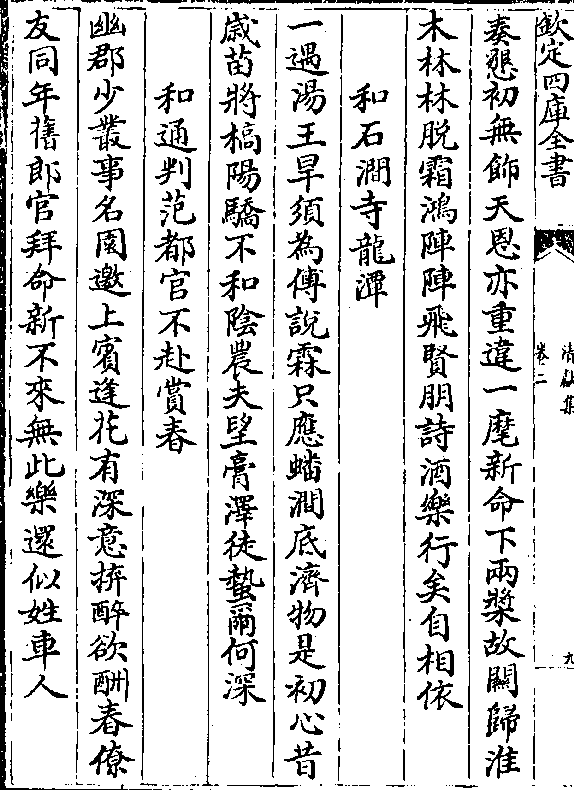 欽定四庫全書
清獻集
卷二
九
奏懇初無飾天恩亦重違一麾新命下兩槳故關歸淮
木林林脫霜鴻陣陣飛賢朋詩酒樂行矣自相依
和石澗寺龍潭
一遇湯王旱須為傅說霖只應蟠澗底濟物是初心昔
歲苗將槁陽驕不和陰農夫望膏澤徒蟄爾何深
和通判范都官不赴賞春
幽郡少叢事名園邀上賓逢花有深意拚醉欲酬春僚
友同年舊郎官拜命新不來無此樂還似姓車人